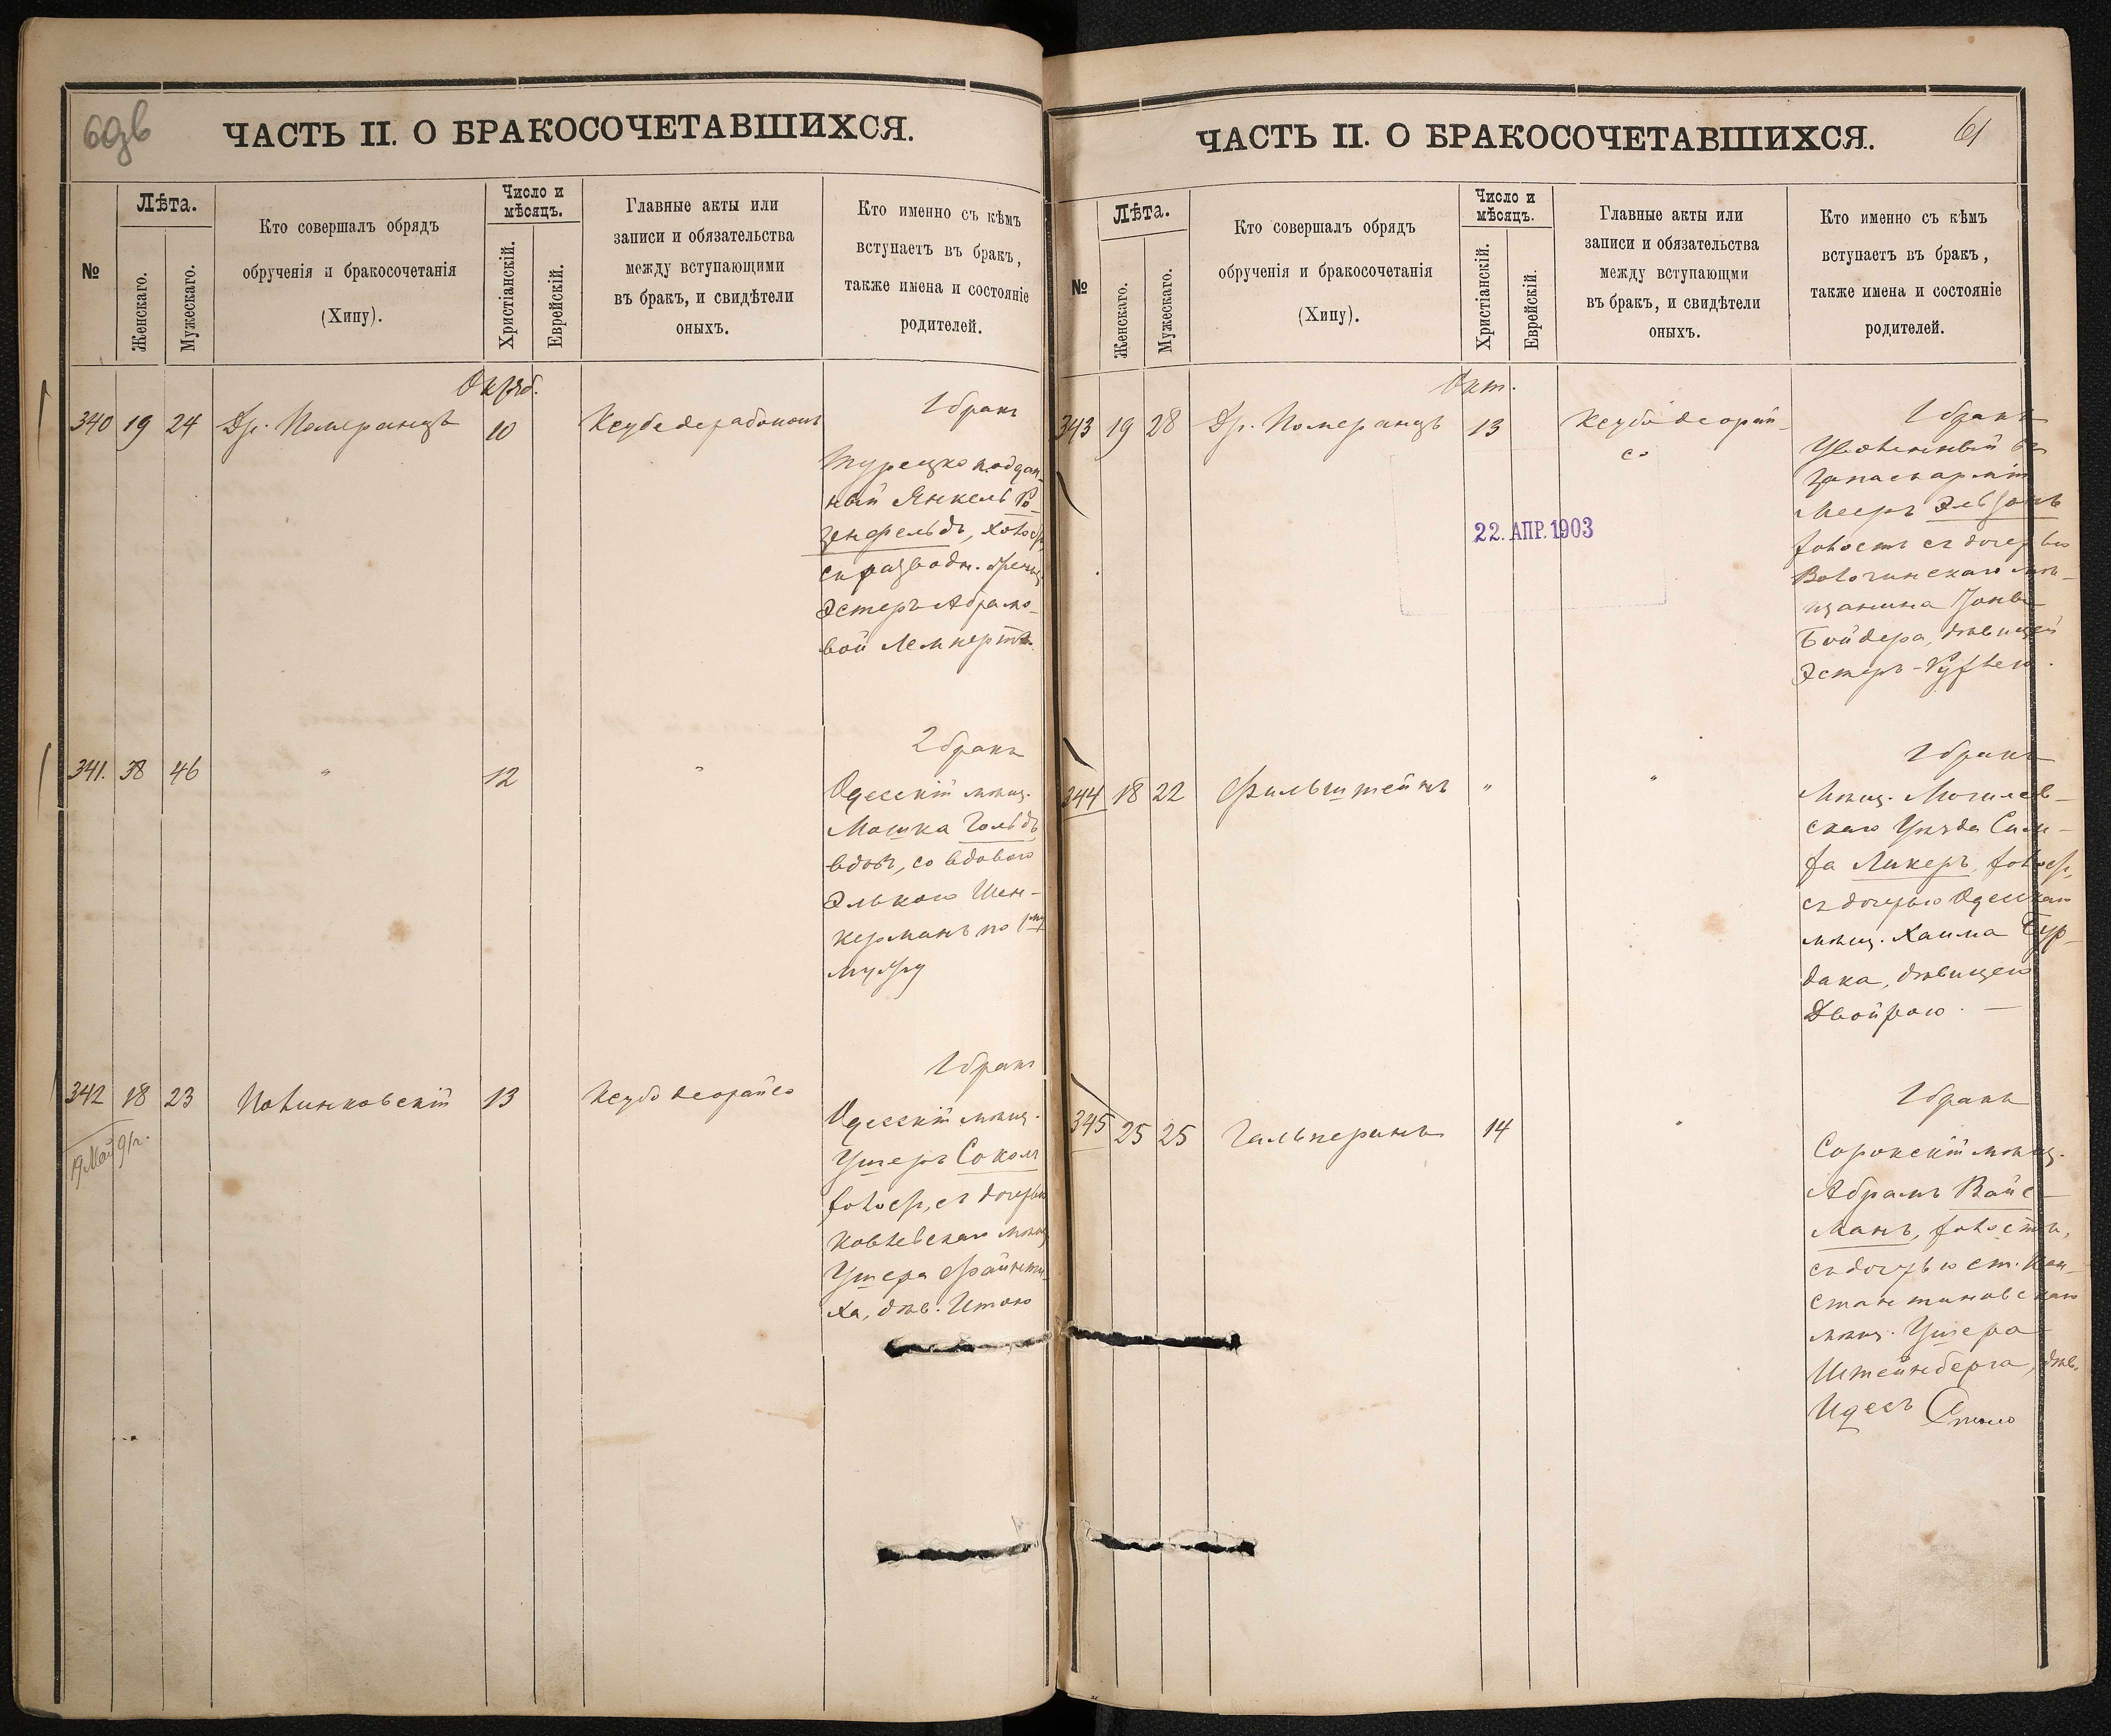 60 об
ЧАСТЬ II. О БРАКОСОЧЕТАВШИХСЯ.
№
Лѣта.
Женскаго.
Мужескаго.
Кто совершалъ обрядъ
обрученія и бракосочетанія
(Хипу).
Число и
мѣсяцъ.
Христіанскій.
Еврейскій.
Главные акты или
записи и обязательства
между вступающими
въ бракъ, и свидѣтели
оныхъ.
Кто именно съ кѣмъ
вступаетъ въ бракъ,
также имена и состояніе
родителей.
Октяб.
340 19 24 Др. Померанцъ 10 Ксубе дерабонон
1 бракъ
Турецко поддан-
ный Янкель Ро-
зенфельдъ, холост,
съ разводн.
Эстеръ Абрамо-
вой Лемпертъ.
341. 38 46 " 12 "
2 бракъ
Одесскій мѣщ.
Мошка Гольдъ,
вдов, со вдовою
Элькою Шен-
керманъ по 1му
мужу
342 18 23 Полинковскій 13 Ксубо деорайсо
19 Май 91 г.
1 бракъ
Одесскій мѣщ.
Ушеръ Соколъ
холост, съ дочерью
Ковневскаго мѣщ
Ушера
ха, дѣв. Итою
ЧАСТЬ II. О БРАКОСОЧЕТАВШИХСЯ.
61
№
Лѣта.
Женскаго.
Мужескаго.
Кто совершалъ обрядъ
обрученія и бракосочетанія
(Хипу).
Число и
мѣсяцъ.
Христіанскій.
Еврейскій.
Главные акты или
записи и обязательства
между вступающми
въ бракъ, и свидѣтели
оныхъ.
Кто именно съ кѣмъ
вступаетъ въ бракъ,
также имена и состояніе
родителей.
Окт.
343 19 28 Др. Померанцъ 13 Ксубо деорай-
со
22. АПР. 1903
1 бракъ
Уволенный въ
запас арміи
Мееръ Эльзонъ
холост съ дочерью
Волочинскаго мѣ-
щанина
Бойдера, дѣвицей
Эстеръ-Рухлею.
344 18 22 Фильштейнъ " "
1 бракъ
Мѣщ. Могилев-
скаго Уѣзда Сим-
ха Ликеръ, холост,
съ дочерью Одесскаго
мѣщ. Хаима Бур-
дака, дѣвицею
Двойрою. —
345 25 25 Гальперинъ 14 "
1 бракъ
Сорокскій мѣщ.
Абрамъ Вайс-
манъ, холостъ,
съ дочерью ст. Кон-
стантиновскаго
мѣщ. Ушера
Штейнберга, дѣв.
Идесъ